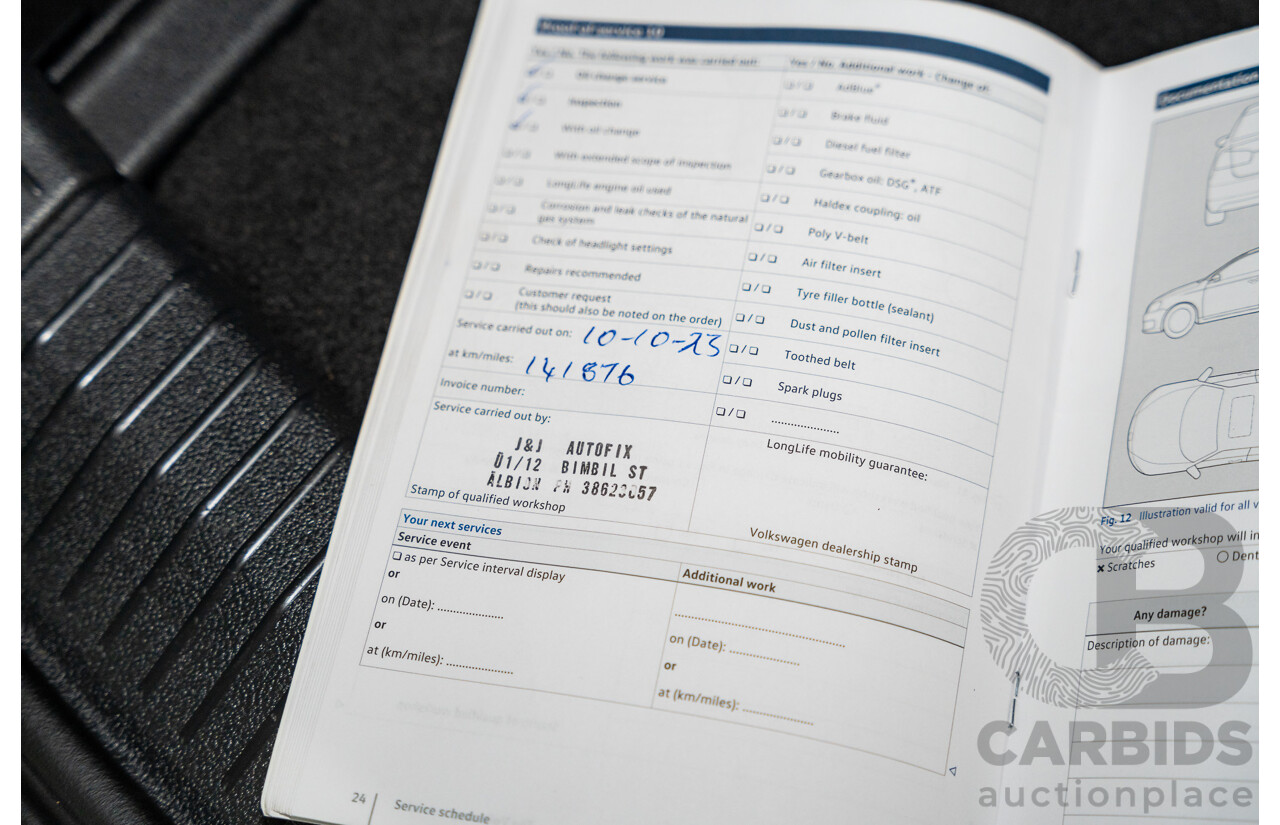 Proof of service 10
Yes / No. The following work was carried out:
Oil change service
Inspection
With oil change
With extended scope of inspection
LongLife engine oil used
Corrosion and leak checks of the natural
gas system
Check of headlight settings
Repairs recommended
Customer request
(this should also be noted on the order)
Service carried out on: 10-10-23
at km/miles: 141876
Invoice number:
Service carried out by:
J&J AUTOFIX
U1/12 BIMBIL ST
ALBION PH
Stamp of qualified workshop
Yes / No. Additional work - Change of:
AdBlue®
Brake fluid
Diesel fuel filter
Gearbox oil: DSG®, ATF
Haldex coupling: oil
Poly V-belt
Air filter insert
Tyre filler bottle (sealant)
Dust and pollen filter insert
Toothed belt
Spark plugs
....................
LongLife mobility guarantee:
Volkswagen dealership stamp
Your next services
Service event
❏ as per Service interval display
or
on (Date): ....................
or
at (km/miles): ....................
Additional work
..................................................
on (Date): ....................
or
at (km/miles): ....................
24 Service schedule
Documentation
Fig. 12 Illustration valid for all v
Your qualified workshop will in
× Scratches ○ Dent
Any damage?
Description of damage:
CB
CARBIDS
auctionplace